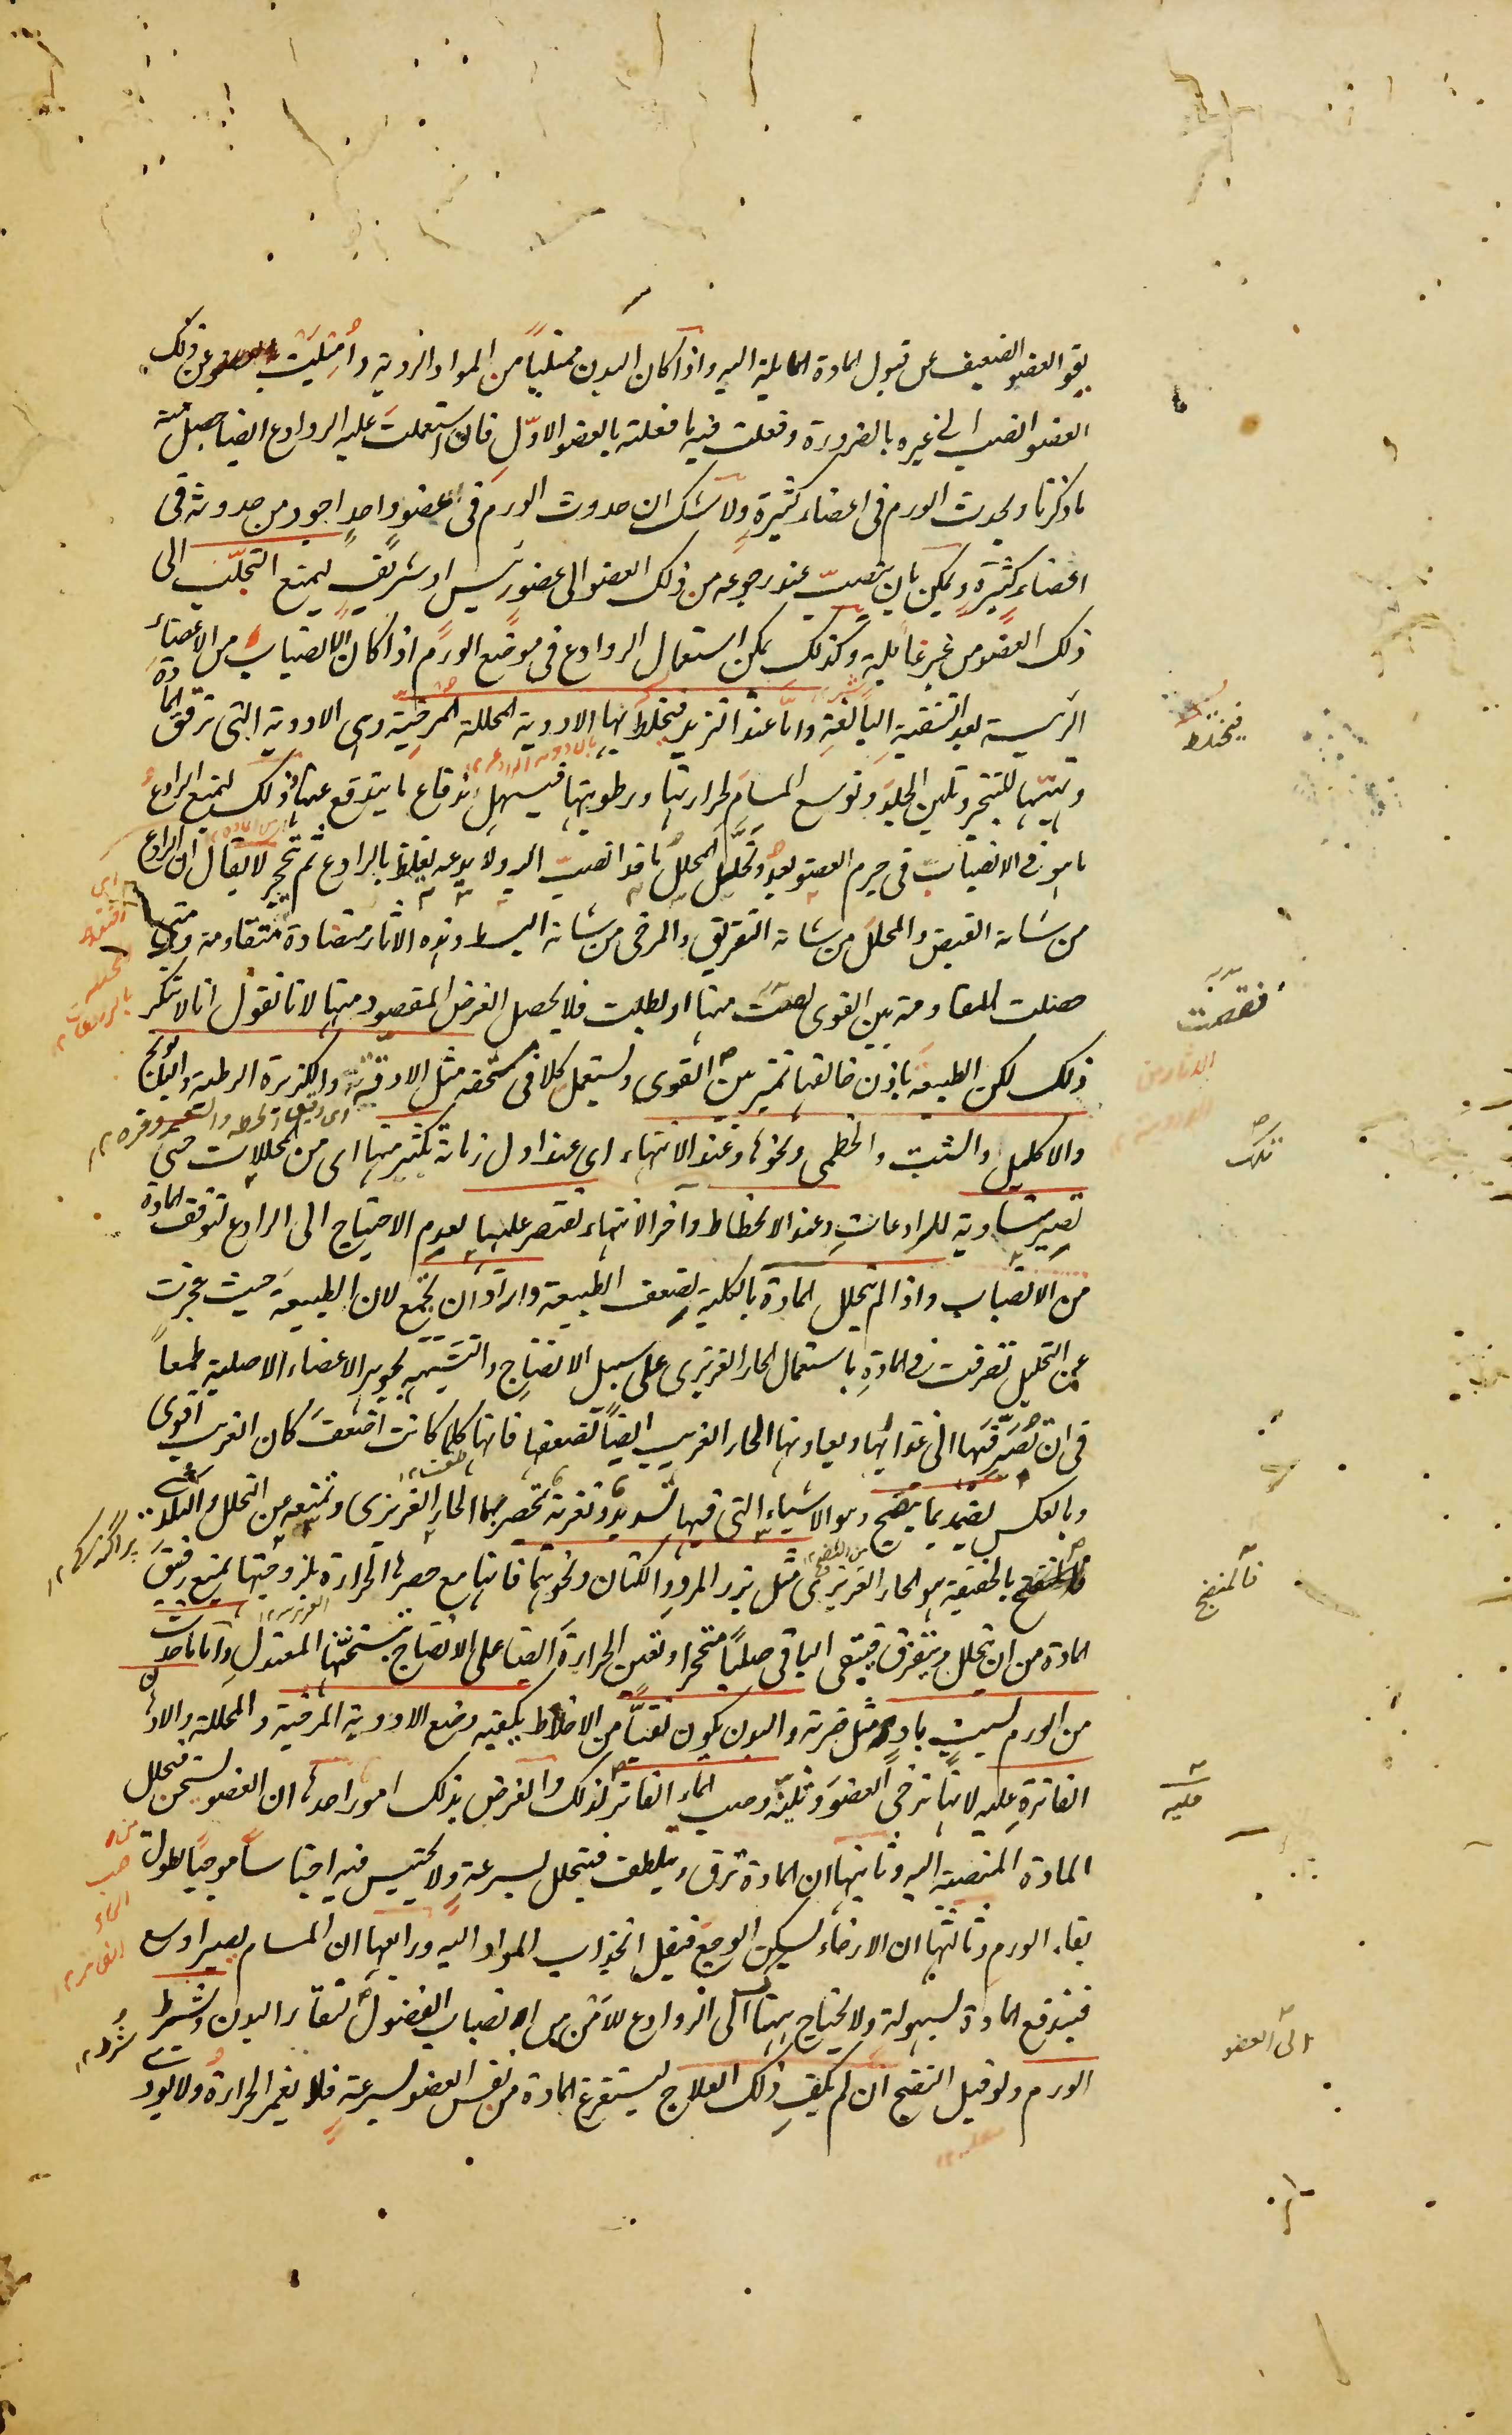 يقو العضو الضعيف عن قبول المادة المايلة اليه واذا كان البدن ممتلياً من المواد الردية وأمتليت عن ذلك
العضو انصب الى غيره بالضرورة وفعلت فيه ما فعلته بالعضو الاوّل فان استعملت عليه الروادع ايضا حصل منه
ما ذكرنا ويحدث الورم فى اعضاء كثيرةٍ ولا شك ان حدوث الورم فى عضوٍ واحدٍ اجود من حدوثه فى
اعضاء كثيرةٍ ويمكن بان ينصبّ عند رجوعه من ذلك العضو الى عضو رئيس او شريفٍ ليمنع التحلّب الى
ذلك العضو من غير غايلةٍ وكذلك يمكن استعمال الروادع فى موضع الورم اذا كان الانصباب من الاعضاء
الرئيسة بعد التنقية البالغة وامّا عند التزيد فتخلط بها الادوية المحللة المرخية وهى الادوية التى ترقق المادة
وتهيّئها للتبخر وتلين الجلد وتوسع المسام لحرارتها ورطوبتها فيسهل اندفاع ما يتوقع عنها ذلك ليمنع الرادع
ما هو فى الانصباب فى جرم العضو بعد وتحلّل المحلل ما قد انصبّ اليه ولا يدعه يغلظ بالرادع ثم يتحجر لا يقال ان الرادع
من شانه القبض والمحلل من شانه التفريق والمرخى من شانه البسط وهذه الاثار متضادة متقاومة ومتى
حصلت المقاومة بين القوى نقصت منها او بطلت فلا يحصل الغرض المقصود منها لانا نقول انا لا ننكر
ذلك لكن الطبيعة باذن خالقها تميّز بين القوى وتستعمل كلا فى مستحقه مثل الادقة والكزبرة الرطبة والبابونج
والاكليل والشبت والخطمى ونحوها وعند الانتهاء اى عند اول زمانه تكثر منها اى من المحللات حتى
تصير مساوية للرادعات وعند الانحطاط واخر الانتهاء تقتصر عليها لعدم الاحتياج الى الرادع لتوقف المادة
من الانصباب واذا لم يتحلل المادة بالكلية لضعف الطبيعة واراد ان تجمع لان الطبيعة حيث عجزت
عن التحليل تصرفت فى المادةِ باستعمال الحار الغريزى على سبيل الانضاج والتشبيه بجوهر الاعضاء الاصلية طمعاً
فى ان تصرّفها الى غذائها ويعاونها الحار الغريب ايضاً لضعفها فانها كلما كانت اضعف كان الغريب اقوى
وبالعكس يضمد بما ينضج وهو الاشياء التى فيها تسديد وتغرية تحصر بهما الحار الغريزى وتمنعه من التحلل والتبدد
بالحقيقة هو الحار الغريزى مثل بزر المرو والكتان ونحوهما فانها مع حصرها الحرارة بلزوجتها يمنع رقيق
المادة من ان يتحلل ويتفرق فيبقى الباقى صلباً متحجرا وتعين الحرارة ايضا على الانضاج بسخنها المعتدل واما ما حدث
من الورم بسبب بادٍ مثل ضربة والبدن يكون نقيّاً من الاخلاط يكفيه وضع الادوية المرخية والمحللة والادهان
الفاترة عليه لانها ترخى العضو وتلينه وصب الماء الفاتر كذلك والغرض بذلك امور احدها ان العضو يسخن فيتحلل
المادة المنصبة اليه وثانيها ان المادة ترق وتلطف فيتحلل بسرعة ولا يحتبس فيه احتباساً موجباً لطول
بقاء الورم وثالثها ان الارخاء يسكن الوجع فيقل انجذاب المواد اليه ورابعها ان المسام يصير اوسع
فيندفع المادة بسهولة ولا يحتاج ههنا الى الروادع للامن من انصباب الفضول لنقاء البدن وشرط
الورم ولو قبل النضج ان لم يكف ذلك العلاج ليستفرغ المادة من نفس العضو بسرعةٍ فلا يغمر الحرارة ولا يودى
فيختلط
فنقصت
تلك
فالمنضج
عليه
الى العضو